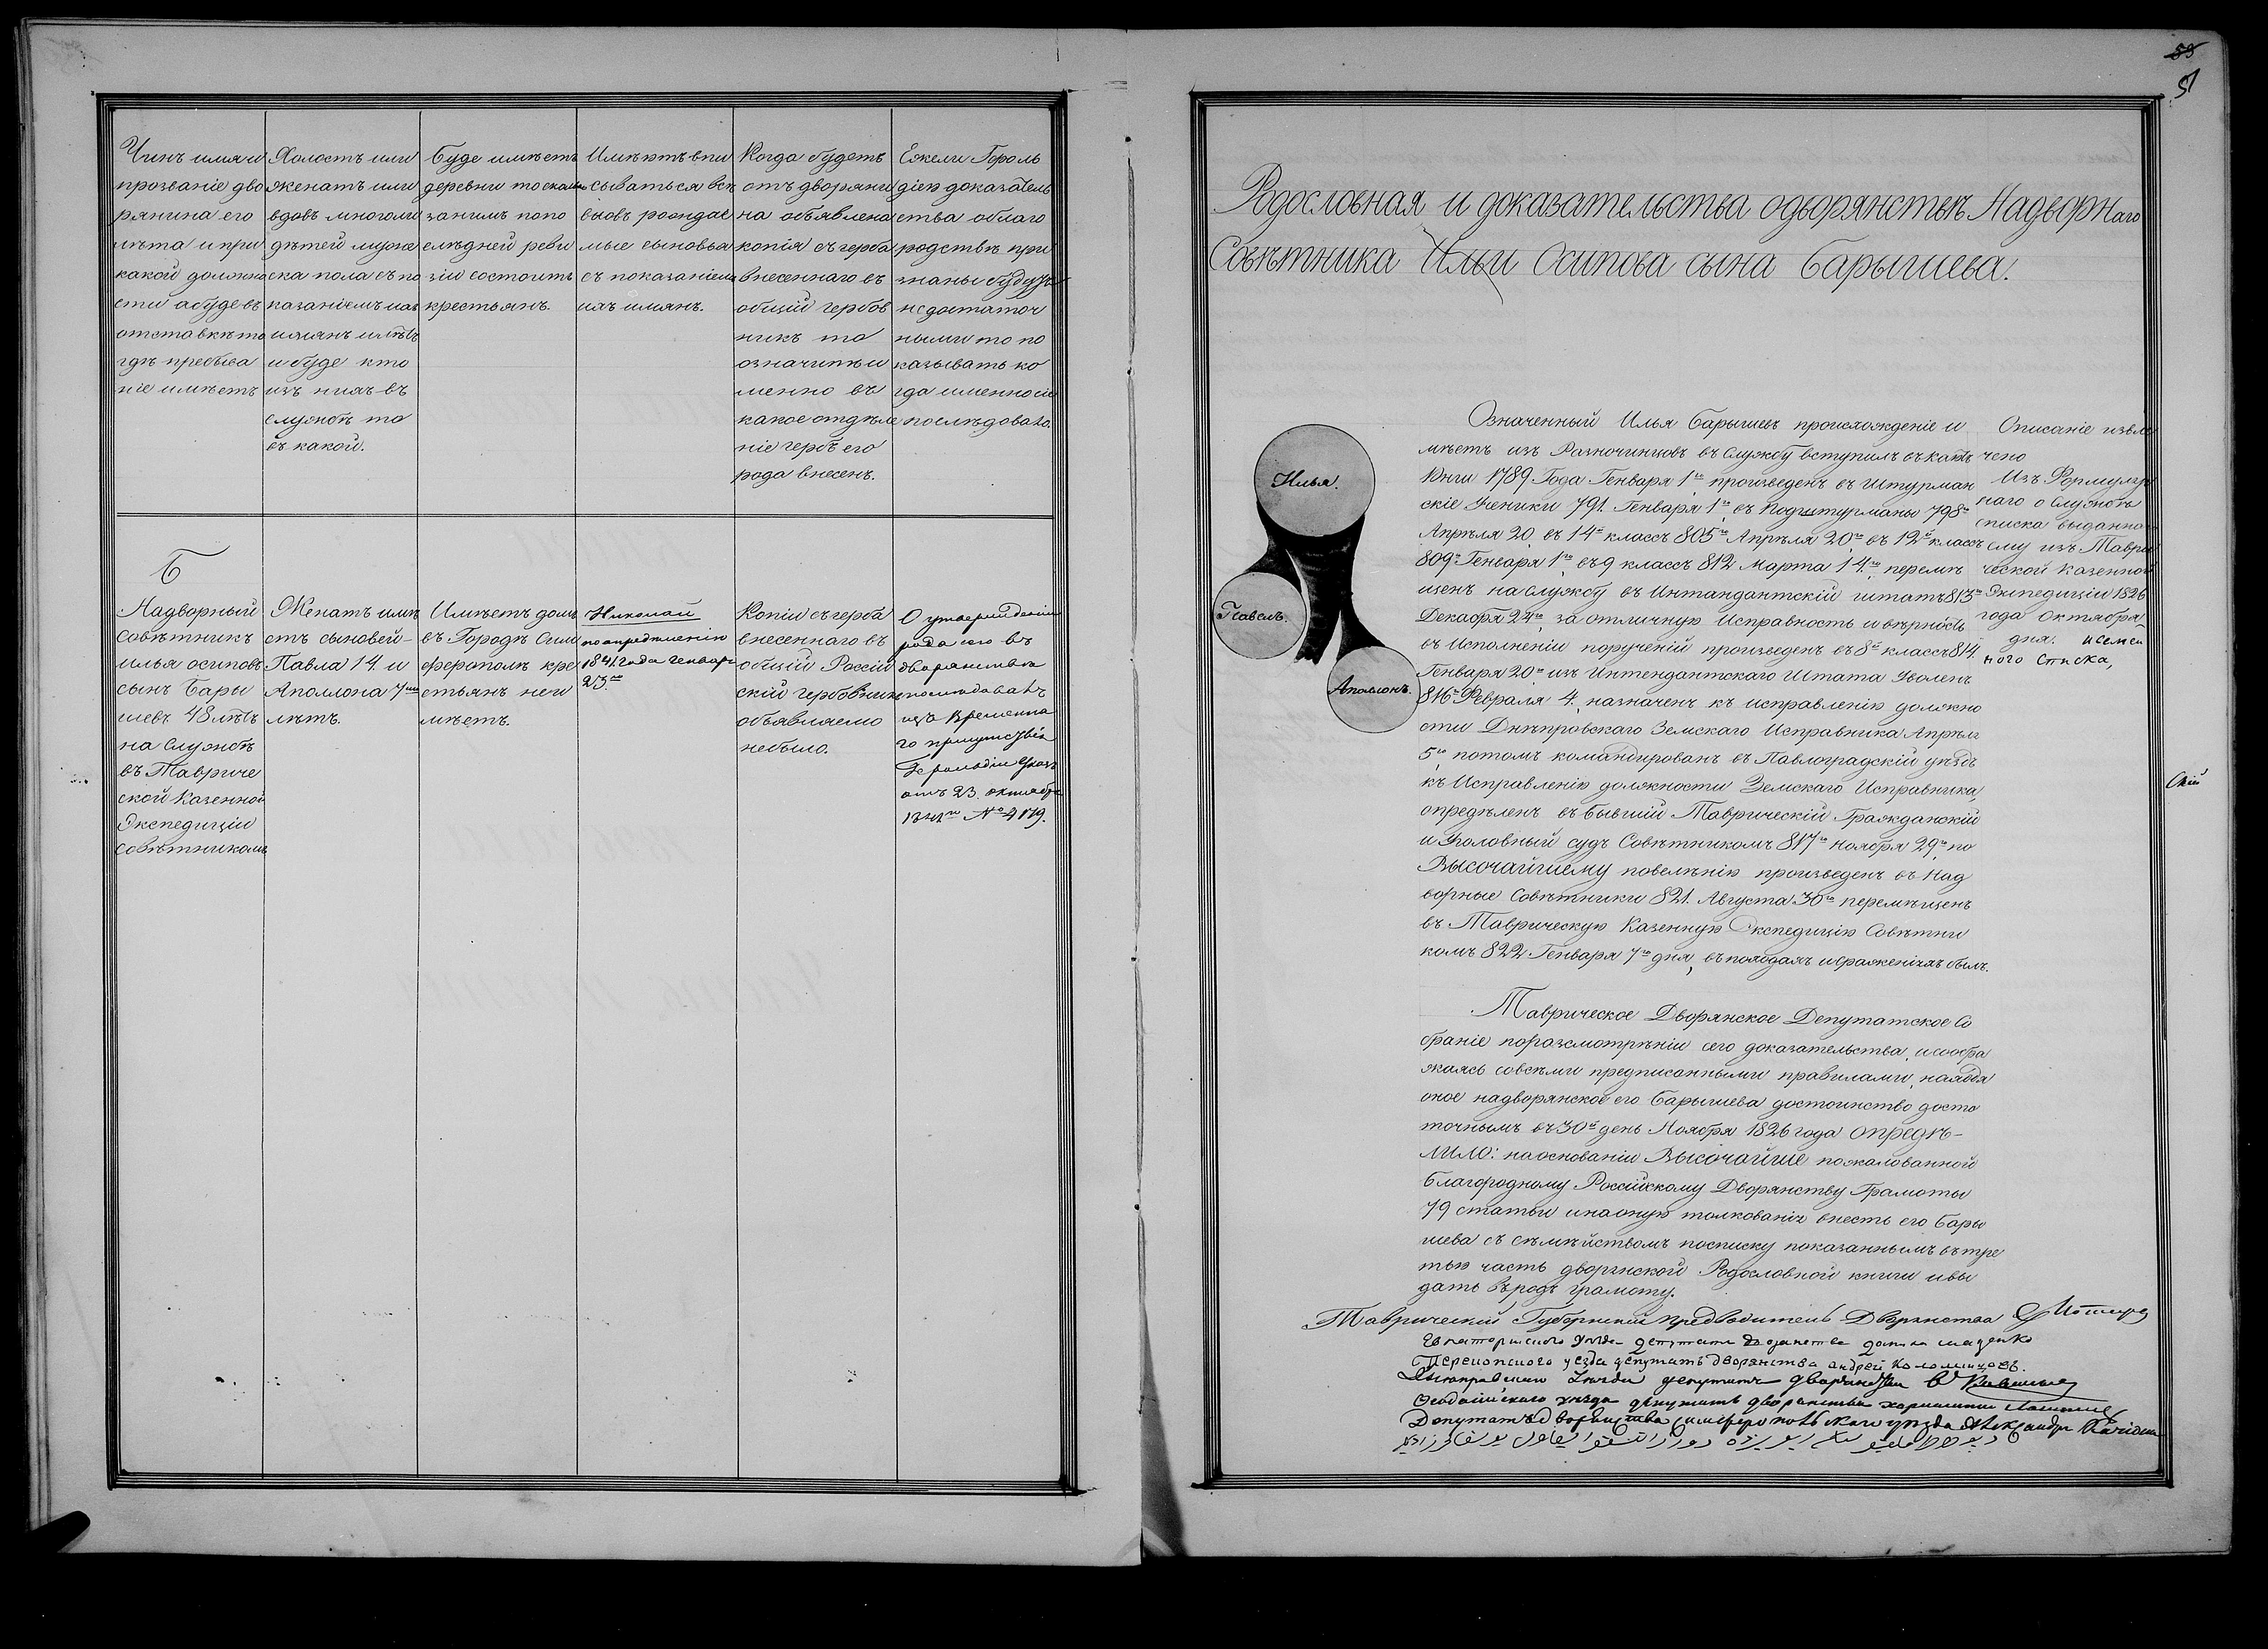 53
51
Чинъ имя и
прозваніе дво
рянина его
лѣта и при
какой должно
сти абуде въ
отставкѣ то
гдѣ пребыва
ніе имѣетъ
Холостъ или
женатъ или
вдовъ многоли
дѣтей муже
ска пола съ по
казаніемъ ихъ
имянъ и лѣтъ
и буде кто
изъ нихъ въ
службѣ то
въ какой.
Буде имѣетъ
деревни то сколько
за нимъ по по
слѣдней реви
зіи состоитъ
крестьянъ.
Имѣютъ впи
сываться всѣ
вновь рождае
мые сыновья
съ показаніемъ
ихъ имянъ.
Когда будетъ
отъ дворяни
на объявлена
копія съ герба
внесеннаго въ
общій гербов
никъ то
означить и
менно въ
какое отдѣле
ніе гербъ его
рода внесенъ.
Ежели Героль
діею доказатель
ства облаго
родствѣ при
знаны будутъ
недостаточ
ными то по
казывать ко
гда именно сіе
послѣдовало.
Б
Надворный
Совѣтникъ
Илья осиповъ
сынъ Бары
шевъ 48 лѣтъ
на Службѣ
въ Тавриче
ской Казенной
Экспедиціи
Совѣтникомъ
Женатъ имѣ
етъ сыновей-
Павла 14 и
Аполлона 7ми
лѣтъ.
Имѣетъ домъ
въ Городѣ Сим
ферополѣ кре
стьянъ неи
мѣетъ.
Николай
по опредѣленію
1841 года генваря
23го
Копіи съ герба
внесеннаго въ
общій Россій
скій гербовникъ
объявляемо
небыло.
О утвержденіи
рода его въ
дворянствѣ
послѣдовалъ
изъ Временна
го присутствія
Герольдіи Указъ
отъ 23. октября
№ 4179.
Родословная и доказательства одворянствѣ Надворнаго
Совѣтника Ильи Осипова сына Барышева.
Илья.
Павелъ.
Аполлонъ.
Означенный Илья Барышевъ происхожденіе и
мѣетъ изъ Разночинцовъ въ Службу вступилъ въ Каде
Юнги 1789 Года Генваря 1го произведенъ въ Штурман
скіе Ученики 791. Генваря 1го въ Подштурманы 798го
Апрѣля 20 въ 14й классъ 805го Апрѣля 20го въ 12й классъ
809го Генваря 1го въ 9 классъ 812 Марта 14го перемѣ
щенъ на Службу въ Интендантскій штатъ 813го
Декабря 24го за отличную Исправность и вѣрность
въ Исполненіи порученій произведенъ въ 8й классъ 814.
Генваря 20го изъ Интендантскаго Штата Уволенъ
816го Февраля 4. назначенъ къ исправленію должно
сти Днѣпровскаго Земскаго Исправника Апрѣля
5го потомъ командированъ въ Павлоградскій уѣздъ
къ Исправленію должности Земскаго Исправника,
опредѣленъ въ Бывшій Таврическій Гражданскій
и Уголовный судъ Совѣтникомъ 817го ноября 29го по
Высочайшему повелѣнію произведенъ въ Над
ворные Совѣтники 821. Августа 30го перемѣщенъ
въ Таврическую Казенную Экспедицію Совѣтни
комъ 822 Генваря 7го дня, въ походахъ и сраженіяхъ былъ.
Описаніе извле
чено
Изъ Формуляр
наго о Службѣ
списка выданнаго
ему изъ Таври
ческой Казенной
Экспедиціи 1826
года Октября
дня. и Семей
ного Списка,
Таврическое Дворянское Депутатское Со
браніе поразсмотрѣніи сего доказательства, исообра
жаясь совсѣми предписанными правилами, находя
оное надворянское его Барышева достоинство доста
точнымъ въ 30й день Ноября 1826 года ОПРЕДѢ-
ЛИЛО: наоснованіи Высочайше пожалованной
Благородному Россійскому Дворянству Грамоты
79 статьи инаоную толкованія внесть его Бары
шева съ сѣмѣйствомъ посписку показаннымъ въ тре
тью часть дворянской Родословной книги ивы
дать въродъ грамоту.
Таврическій Губернскій предводитель Дворянства
Евпаторійского уѣзда депутатъ дворянства
Перекопского уезда депутатъ дворянства андрей Коломицовъ.
Днѣпровскаго Уѣзда депутатъ дворянства
Феодосійскаго уѣзда депутатъ дворянства
Депутатъ дворянства Симферопольскаго уѣзда Александръ